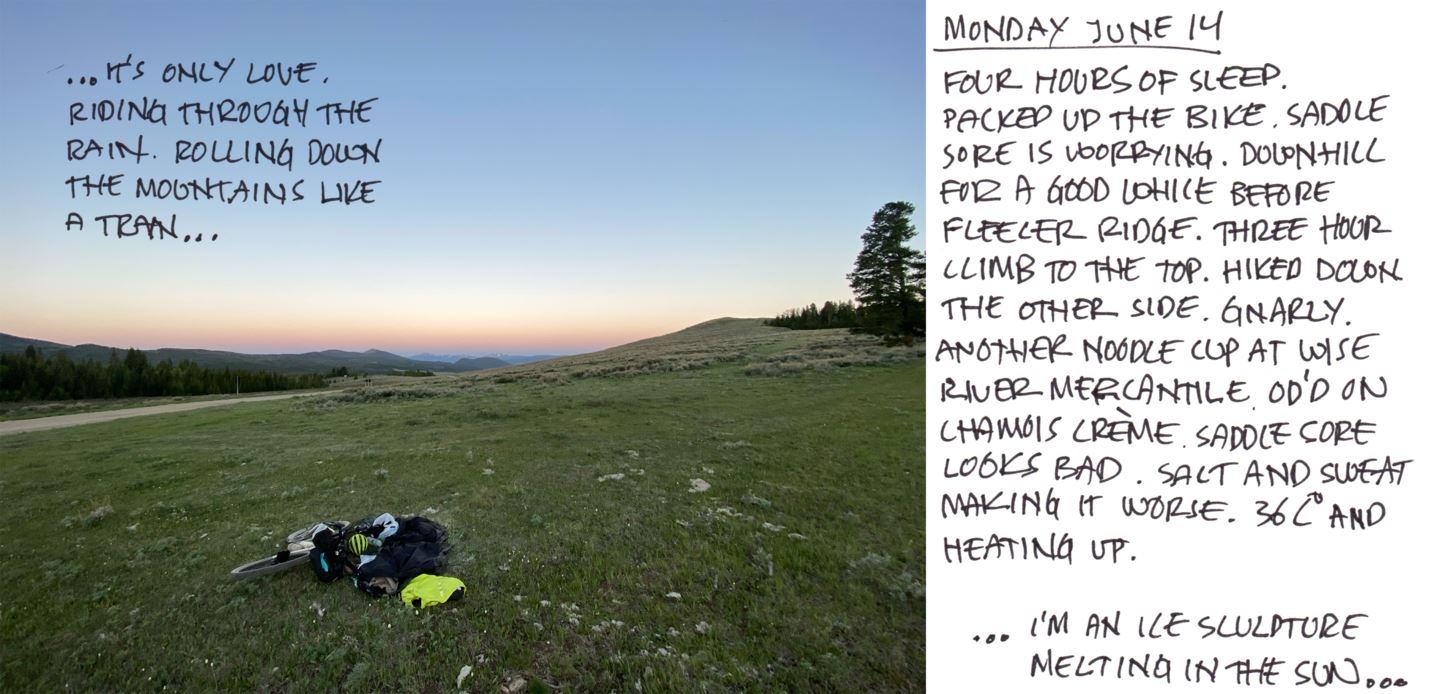 ...IT'S ONLY LOVE.
RIDING THROUGH THE
RAIN. ROLLING DOWN
THE MOUNTAINS LIKE
A TRAN...
MONDAY JUNE 14
FOUR HOURS OF SLEEP.
PACKED UP THE BIKE. SADDLE
SORE IS WORRYING. DOWNHILL
FOR A GOOD WHILE BEFORE
FLEECER RIDGE. THREE HOUR
CLIMB TO THE TOP. HIKED DOWN
THE OTHER SIDE. GNARLY.
ANOTHER NOODLE CUP AT WISE
RIVER MERCANTILE. OD'D ON
CHAMOIS CRÈME. SADDLE SORE
LOOKS BAD. SALT AND SWEAT
MAKING IT WORSE. 36 C° AND
HEATING UP.
... I'M AN ICE SCULPTURE
MELTING IN THE SUN...